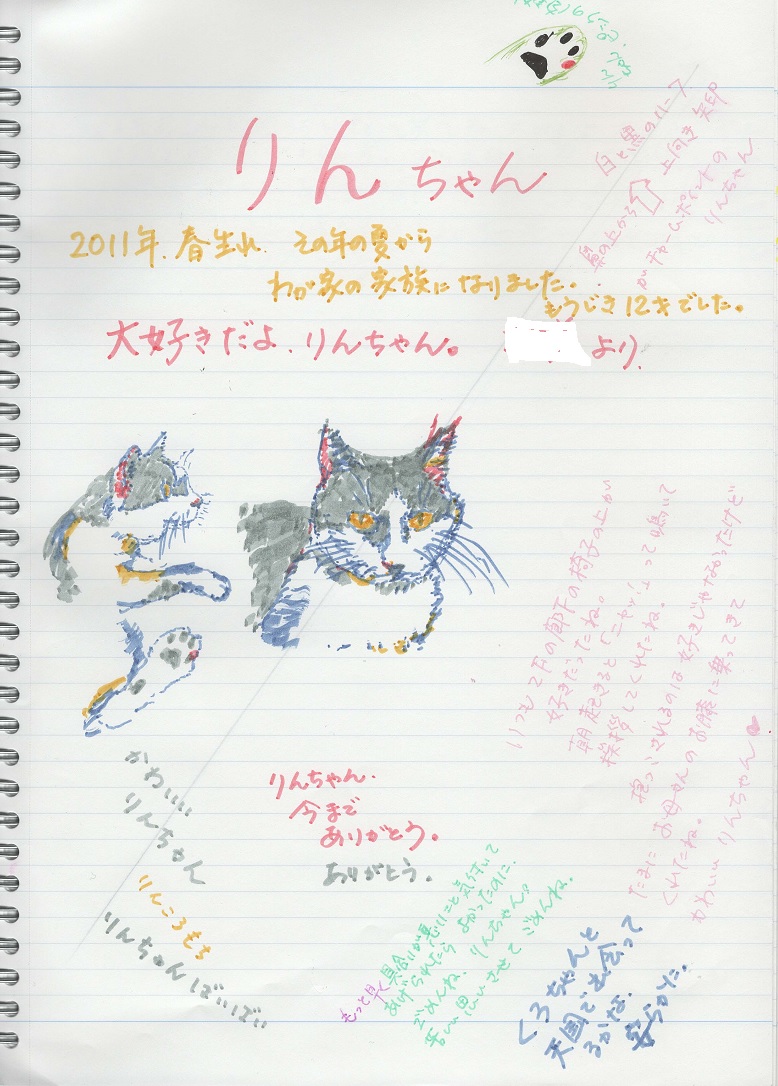 りんちゃん
白と黒のハーフ
鼻の上から⇧上向き矢印
がチャームポイントの
りんちゃん
2011年、春生れ、その年の夏から
わが家の家族になりました。
もうじき12才でした。
大好きだよ、りんちゃん。
より
いつも2Fの廊下の椅子の上が
好きだったね。
朝起きると「ニャッ!」って鳴いて
挨拶してくれたね。
抱っこされるのは好きじゃなかったけど
たまにお母さんのお膝に乗ってきて
くれたね。
かわいいりんちゃん
かわいい
りんちゃん
りんころもち
りんちゃんばいばい
りんちゃん、
今まで
ありがとう。
ありがとう。
もっと早く具合が悪いこと気付いて
あげられたらよかったのに、
ごめんね、りんちゃん。
苦しい思いさせてごめんね。
くろちゃんと
天国で出会って
るかな、
安らかに。